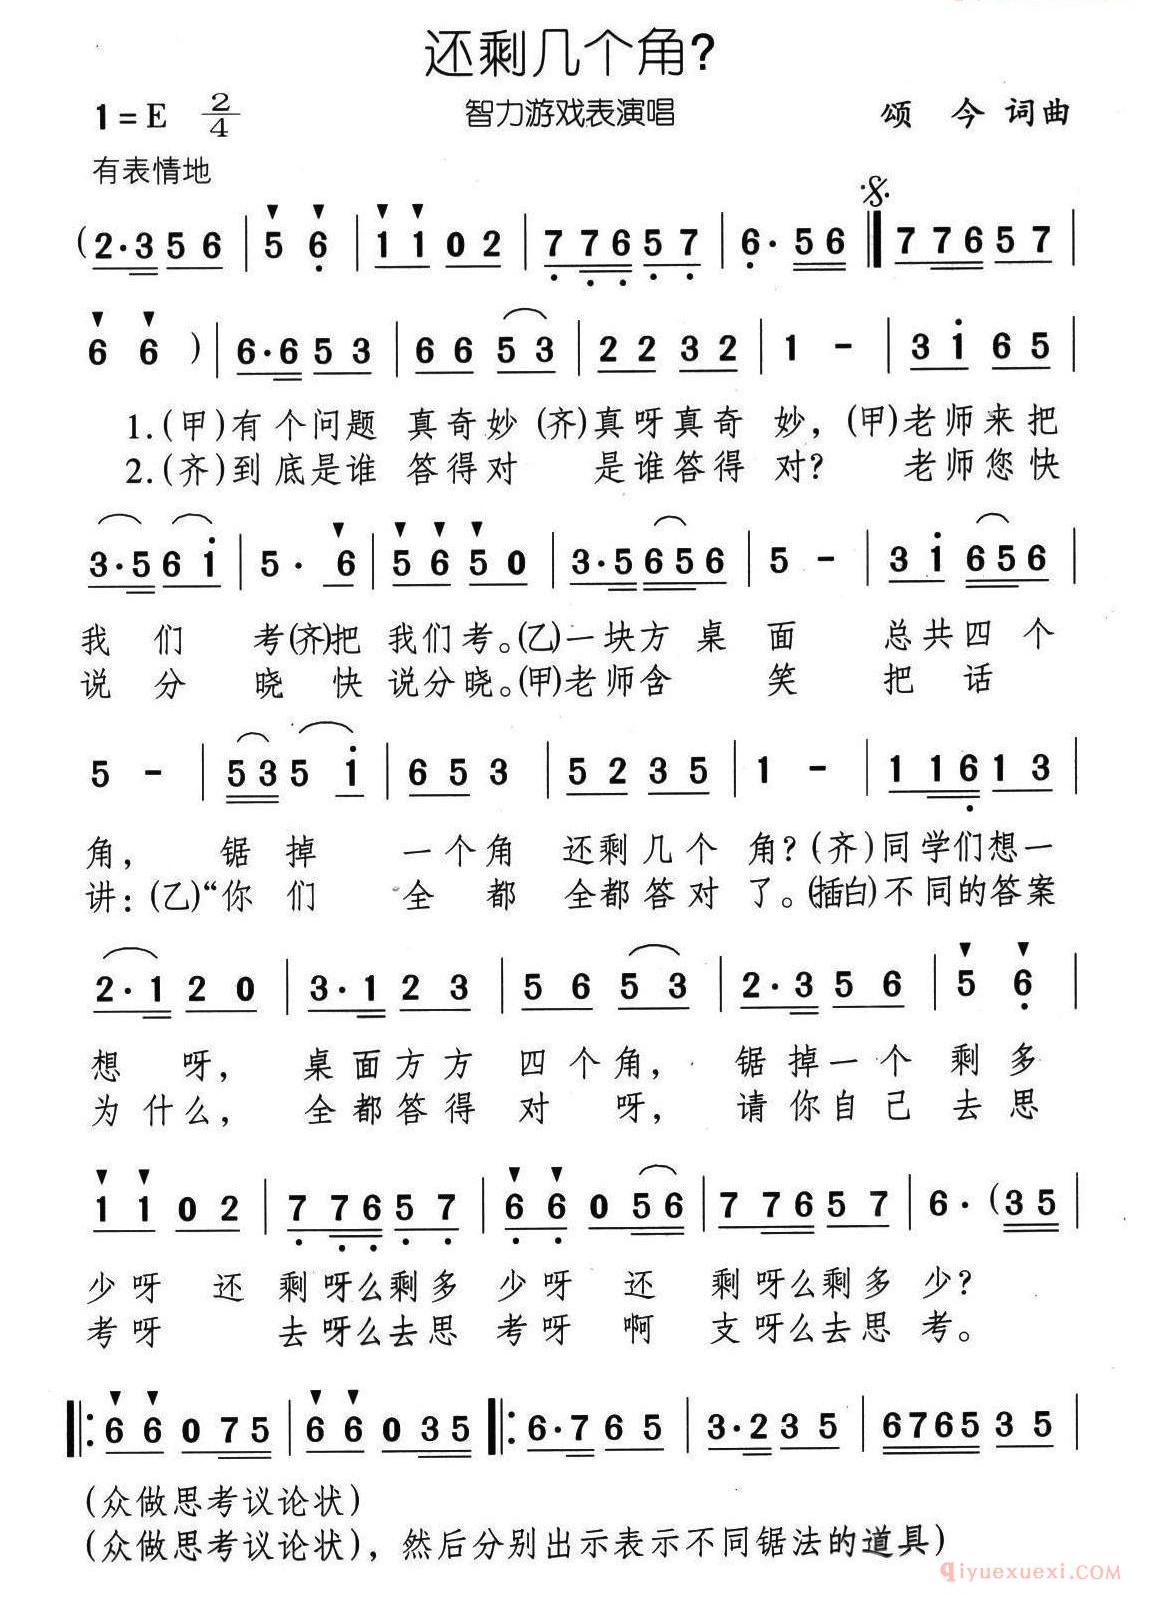 还剩几个角?
1=E 2/4 智力游戏表演唱 颂 今 词曲
有表情地
(2·3 5 6 | 5 6 | 1 1 0 2 | 7 7 6 5 7 | 6· 5 6 ‖ 7 7 6 5 7 |
6 6 ) | 6·6 5 3 | 6 6 5 3 | 2 2 3 2 | 1 - | 3 1 6 5 |
1.(甲)有个问题 真奇妙 (齐)真呀真奇 妙, (甲)老师来把
2.(齐)到底是谁 答得对 是谁答得 对? 老师您快
3·5 6 1 | 5· 6 | 5 6 5 0 | 3·5 6 5 6 | 5 - | 3 1 6 5 6 |
我 们 考(齐)把 我们考。(乙)一块方桌 面 总共四 个
说 分 晓 快 说分晓。(甲)老师含 笑 把 话
5 - | 5 3 5 1 | 6 5 3 | 5 2 3 5 | 1 - | 1 1 6 1 3 |
角, 锯 掉 一个角 还剩几个 角?(齐)同学们想一
讲:(乙)“你 们 全 都 全都答对 了。(插白)不同的答案
2·1 2 0 | 3·1 2 3 | 5 6 5 3 | 2·3 5 6 | 5 6 |
想 呀, 桌面方方 四个角, 锯掉一个 剩 多
为什么, 全都答得 对 呀, 请你自己 去 思
1 1 0 2 | 7 7 6 5 7 | 6 6 0 5 6 | 7 7 6 5 7 | 6· (3 5 |
少呀 还 剩呀么剩多 少呀 还 剩呀么剩多 少?
考呀 去呀么去思 考呀 啊 支呀么去思 考。
‖: 6 6 0 7 5 | 6 6 0 3 5 ‖: 6·7 6 5 | 3·2 3 5 | 6 7 6 5 3 5 |
(众做思考议论状)
(众做思考议论状),然后分别出示表示不同锯法的道具)
qiyuexuexi.COM